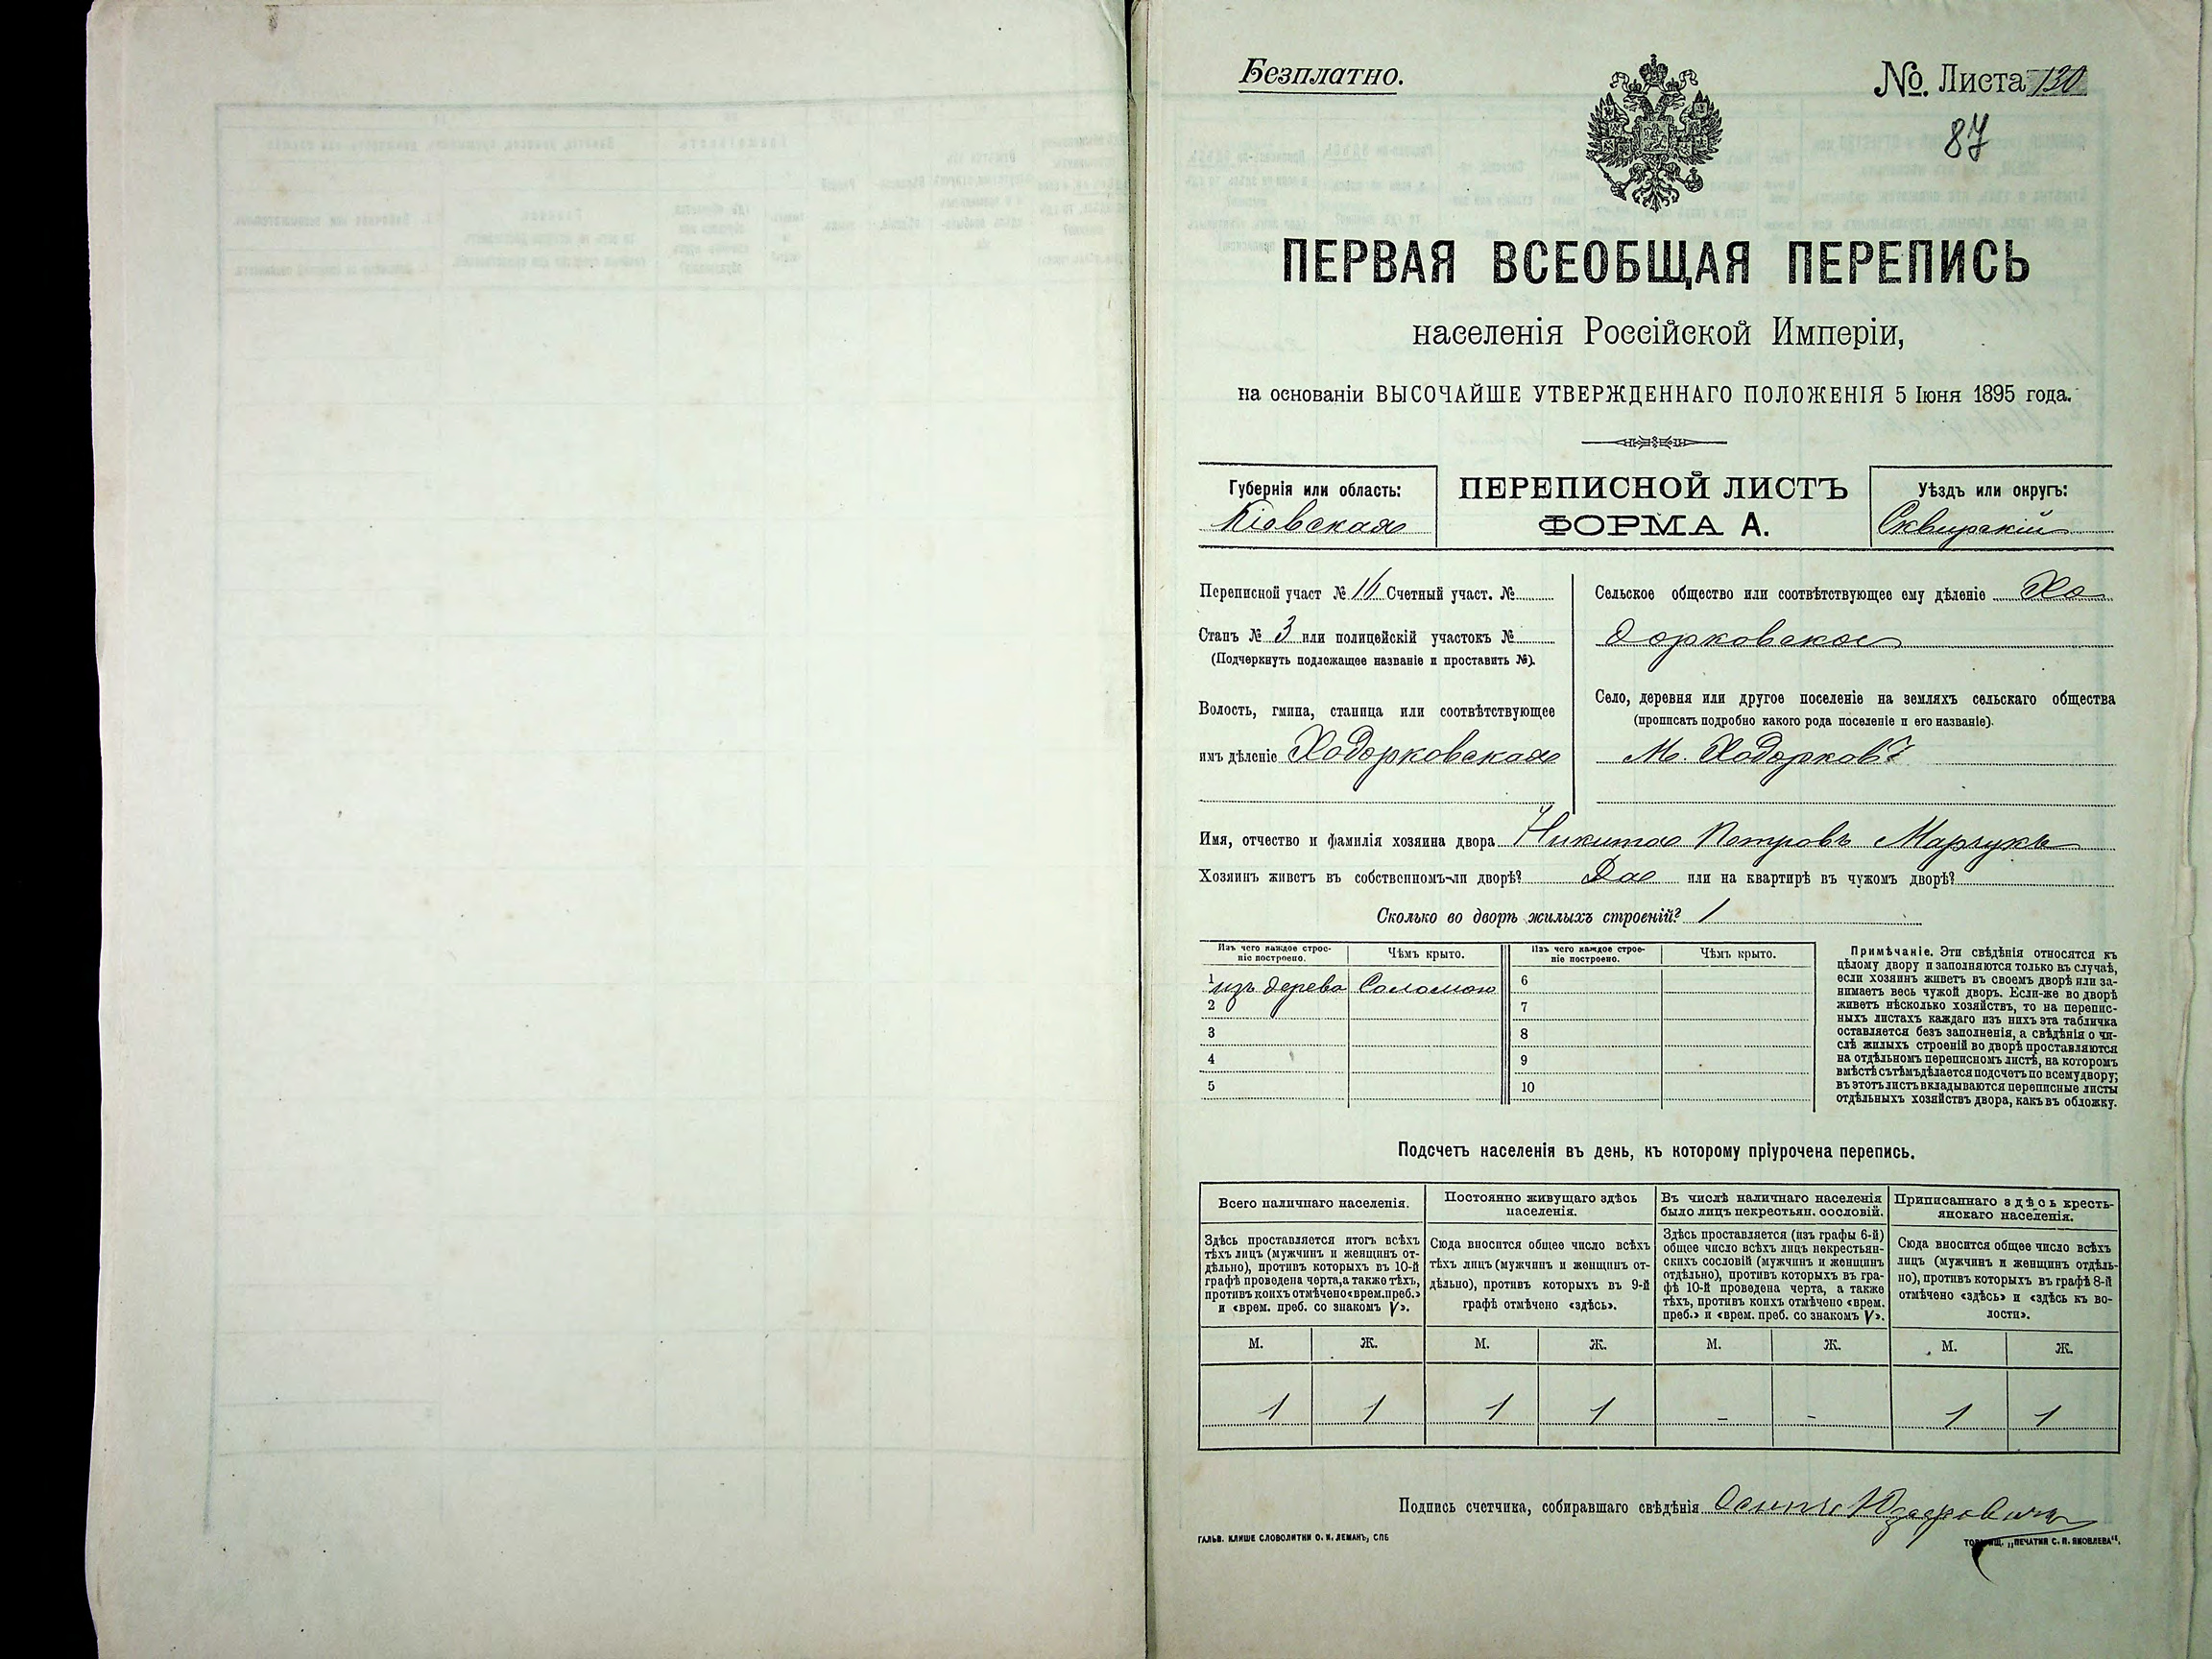 Безплатно.
№. Листа 130
87
ПЕРВАЯ ВСЕОБЩАЯ ПЕРЕПИСЬ
населенія Россійской Имперіи,
на основаніи ВЫСОЧАЙШЕ УТВЕРЖДЕННАГО ПОЛОЖЕНІЯ 5 Іюня 1895 года.
Губернія или область:
Кіевская
ПЕРЕПИСНОЙ ЛИСТЪ
ФОРМА А.
Уѣздъ или округъ:
Сквирскій
Переписной участ № 16 Счетный участ. №
Станъ № 3 или полицейскій участокъ №
(Подчеркнуть подлежащее названіе и проставить №).
Волость, гмина, станица или соотвѣтствующее
имъ дѣленіе Ходорковская
Сельское общество или соотвѣтствующее ему дѣленіе Хо
дорковское
Село, деревня или другое поселеніе на земляхъ сельскаго общества
(прописать подробно какого рода поселеніе и его названіе).
М. Ходорковъ
Имя, отчество и фамилія хозяина двора Никита Петровъ Марчукъ
Хозяинъ живетъ въ собственномъ-ли дворѣ? Да или на квартирѣ въ чужомъ дворѣ?
Сколько во дворѣ жилыхъ строеній? 1
Изъ чего каждое строе-
ніе построено.
Чѣмъ крыто.
Изъ чего каждое строе-
ніе построено.
Чѣмъ крыто.
1 изъ дерева Соломою 6
2 7
3 8
4 9
5 10
Примѣчаніе. Эти свѣдѣнія относятся къ
цѣлому двору и заполняются только въ случаѣ,
если хозяинъ живетъ въ своемъ дворѣ или за-
нимаетъ весь чужой дворъ. Если-же во дворѣ
живетъ нѣсколько хозяйствъ, то на перепис-
ныхъ листахъ каждаго изъ нихъ эта табличка
оставляется безъ заполненія, а свѣдѣнія о чи-
слѣ жилыхъ строеній во дворѣ проставляются
на отдѣльномъ переписномъ листѣ, на которомъ
вмѣстѣ съ тѣмъ дѣлается подсчетъ по всему двору;
въ этотъ листъ вкладываются переписные листы
отдѣльныхъ хозяйствъ двора, какъ въ обложку.
Подсчетъ населенія въ день, къ которому пріурочена перепись.
Всего наличнаго населенія.
Здѣсь проставляется итогъ всѣхъ
тѣхъ лицъ (мужчинъ и женщинъ от-
дѣльно), противъ которыхъ въ 10-й
графѣ проведена черта, а также тѣхъ,
противъ коихъ отмѣчено «врем. преб.»
и «врем. преб. со знакомъ V».
Постоянно живущаго здѣсь
населенія.
Сюда вносится общее число всѣхъ
тѣхъ лицъ (мужчинъ и женщинъ от-
дѣльно), противъ которыхъ въ 9-й
графѣ отмѣчено «здѣсь».
Въ числѣ наличнаго населенія
было лицъ некрестьян. сословій.
Здѣсь проставляется (изъ графы 6-й)
общее число всѣхъ лицъ некрестьян-
скихъ сословій (мужчинъ и женщинъ
отдѣльно), противъ которыхъ въ гра-
фѣ 10-й проведена черта, а также
тѣхъ, противъ коихъ отмѣчено «врем.
преб.» и «врем. преб. со знакомъ V».
Приписаннаго здѣсь кресть-
янскаго населенія.
Сюда вносится общее число всѣхъ
лицъ (мужчинъ и женщинъ отдѣль-
но), противъ которыхъ въ графѣ 8-й
отмѣчено «здѣсь» и «здѣсь къ во-
лости».
М. Ж. М. Ж. М. Ж. М. Ж.
1 1 1 1 - - 1 1
Подпись счетчика, собиравшаго свѣдѣнія Осипъ
ГАЛЬВ. КЛИШЕ СЛОВОЛИТНИ О. И. ЛЕМАНЪ, СПБ
ТОВАРИЩ. „ПЕЧАТНЯ С. П. ЯКОВЛЕВА“.